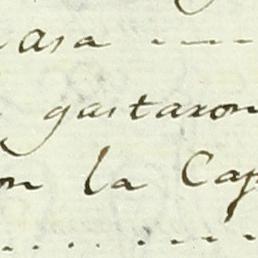 asa
gastaron
on la Cap